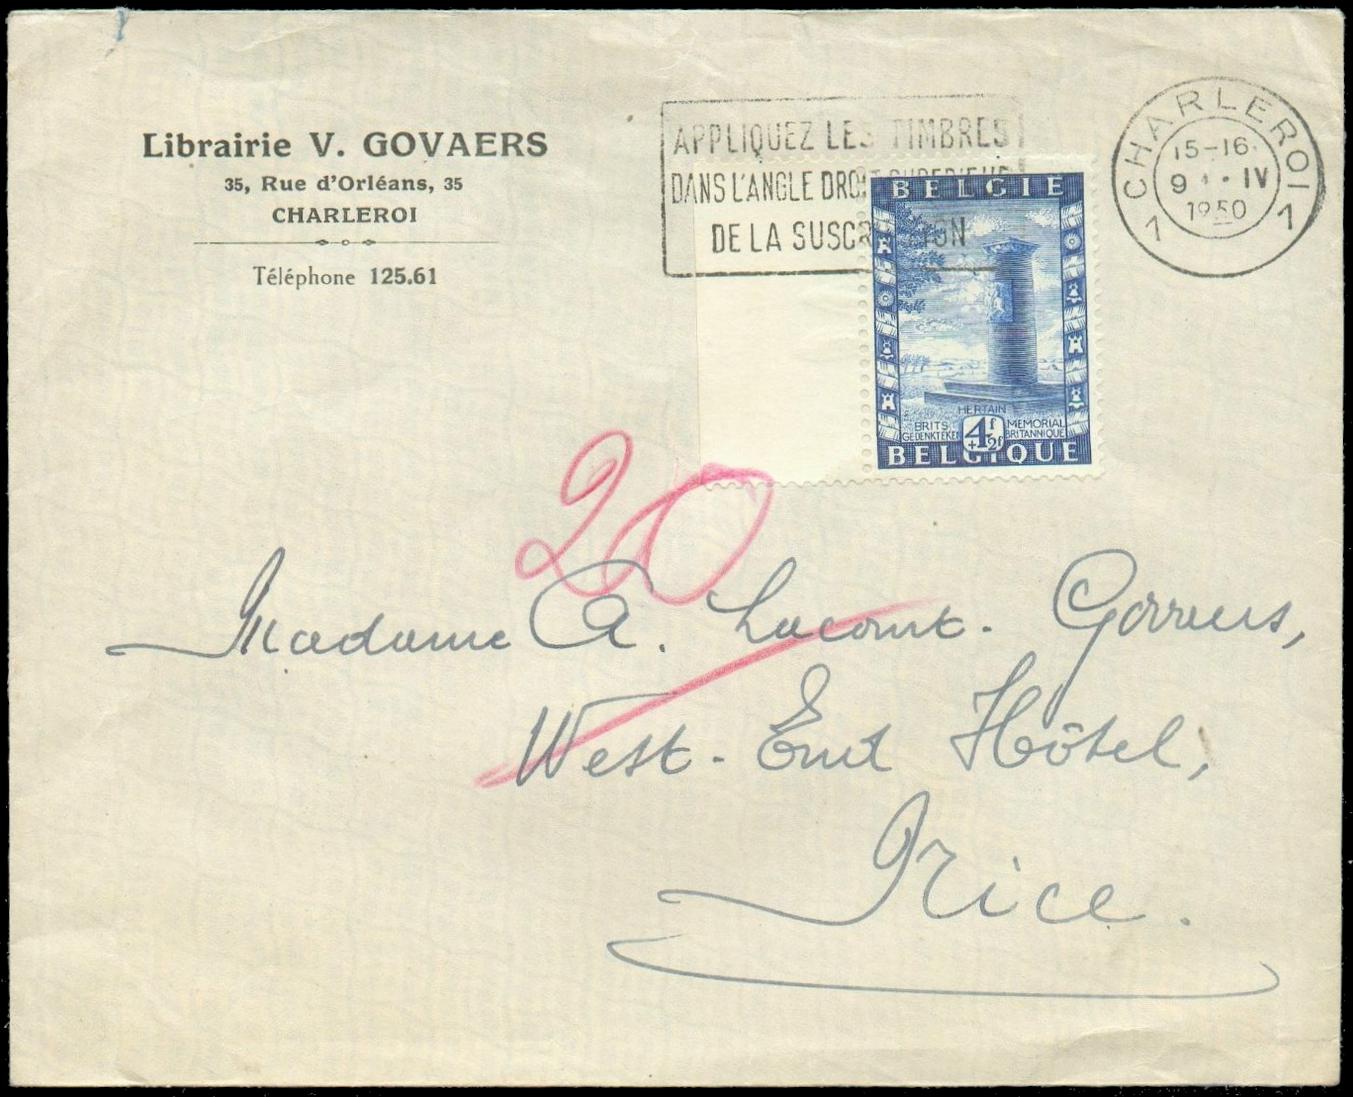 Librairie V. GOVAERS
35, Rue d'Orléans, 35
CHARLEROI
Téléphone 125.61
APPLIQUEZ LES TIMBRES
DANS L'ANGLE DROIT SUPERIEUR
DE LA SUSCRIPTION
1 CHARLEROI 1
15-16
9 · IV
1950
BELGIE
HERTAIN
BRITS GEDENKTEKEN
MEMORIAL BRITANNIQUE
4F
+2F
BELGIQUE
20
Madame A. Lacomt.
West-End Hôtel,
Nice.